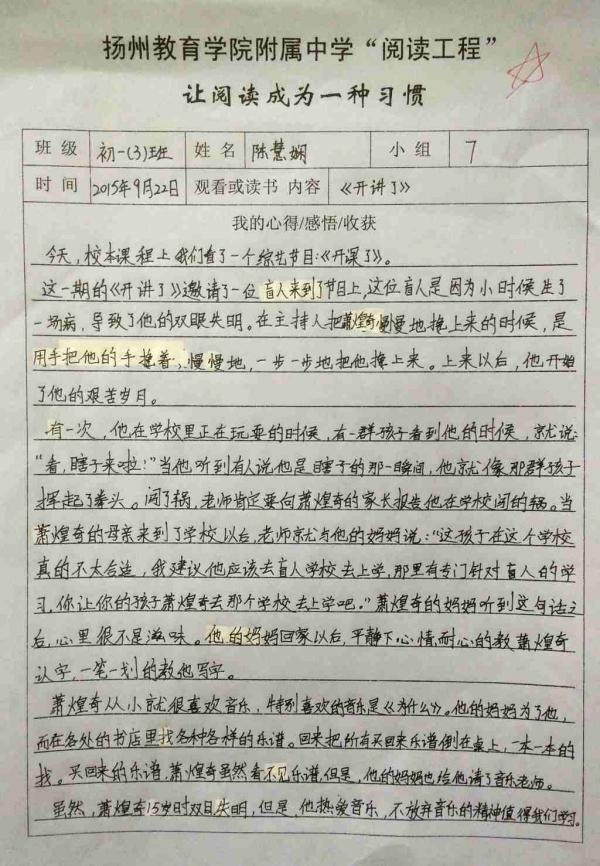 扬州教育学院附属中学“阅读工程”
让阅读成为一种习惯
班级 初一(3)班 姓名 陈慧娴 小组 7
时间 2015年9月22日 观看或读书 内容 《开讲了》
我的心得/感悟/收获
今天,校本课程上我们看了一个综艺节目:《开课了》。
这一期的《开讲了》邀请了一位盲人来到了节目上,这位盲人是因为小时候生了
一场病,导致了他的双眼失明。在主持人把萧煌奇慢慢地搀上来的时候,是
用手把他的手搀着,慢慢地,一步一步地把他搀上来。上来以后,他开始
了他的艰苦岁月。
有一次,他在学校里正在玩耍的时候,有一群孩子看到他的时候,就说:
“看,瞎子来啦!”当他听到有人说他是瞎子的那一瞬间,他就像那群孩子
挥起了拳头。闯了祸,老师肯定要向萧煌奇的家长报告他在学校闯的祸。当
萧煌奇的母亲来到了学校以后,老师就与他的妈妈说:“这孩子在这个学校
真的不太合适,我建议他应该去盲人学校去上学,那里有专门针对盲人的学
习,你让你的孩子萧煌奇去那个学校去上学吧。”萧煌奇的妈妈听到这句话之
后,心里很不是滋味。他的妈妈回家以后,平静下心情,耐心的教萧煌奇
认字,一笔一划的教他写字。
萧煌奇从小就很喜欢音乐,特别喜欢的音乐是《为什么》。他的妈妈为了他,
而在各处的书店里找各种各样的乐谱。回来把所有买回来乐谱倒在桌上,一本一本的
找。买回来的乐谱,萧煌奇虽然看不见乐谱,但是,他的妈妈也给他请了音乐老师。
虽然,萧煌奇15岁时双目失明,但是,他热爱音乐,不放弃音乐的精神值得我们学习。